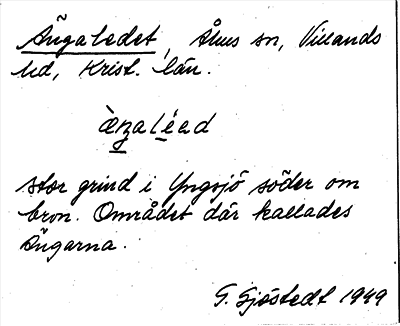 Ängaledet, Åhus sn, Villands
hd, Krist. län.
stor grind i Yngsjö söder om
bron. Området där kallades
Ängarna.
G. Sjöstedt 1949